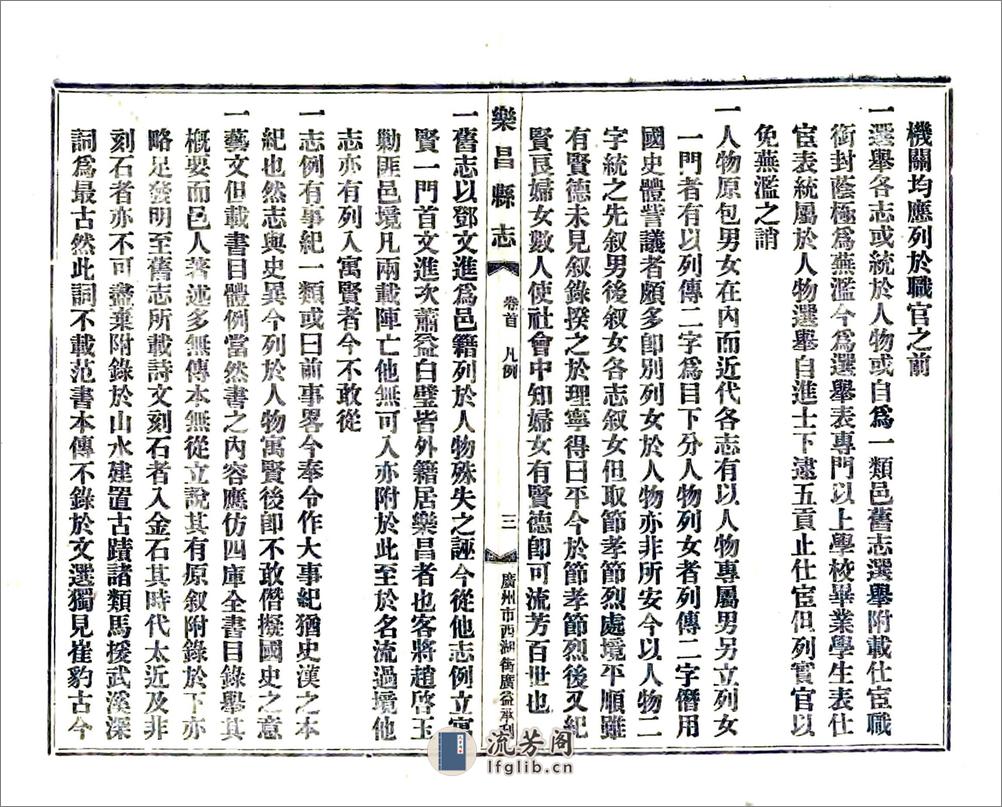 機關均應列於職官之前
一選舉各志或統於人物或自爲一類邑舊志選舉附載仕宦職
銜封蔭極爲蕪濫今爲選舉表專門以上學校畢業學生表仕
宦表統屬於人物選舉自進士下逮五貢止仕宦但列實官以
免蕪濫之誚
一人物原包男女在內而近代各志有以人物專屬男另立列女
一門者有以列傳二字爲目下分人物列女者列傳二字僭用
國史體訾議者頗多卽別列女於人物亦非所安今以人物二
字統之先叙男後叙女各志叙女但取節孝節烈處境平順雖
有賢德未見叙錄揆之於理寧得曰平今於節孝節烈後又紀
賢良婦女數人使社會中知婦女有賢德卽可流芳百世也
樂昌縣志
卷首 凡例
三
廣州市西湖街廣益承刊
一舊志以鄧文進爲邑籍列於人物殊失之誣今從他志例立寓
賢一門首文進次蕭益白璧皆外籍居樂昌者也客將趙啓玉
勦匪邑境凡兩載陣亡他無可入亦附於此至於名流過境他
志亦有列入寓賢者今不敢從
一志例有事紀一類或曰前事畧今奉令作大事紀猶史漢之本
紀也然志與史異今列於人物寓賢後卽不敢僭擬國史之意
一藝文但載書目體例當然書之內容應仿四庫全書目錄舉其
概要而邑人著述多無傳本無從立說其有原叙附錄於下亦
略足發明至舊志所載詩文刻石者入金石其時代太近及非
刻石者亦不可盡棄附錄於山水建置古蹟諸類馬援武溪深
詞爲最古然此詞不載范書本傳不錄於文選獨見崔豹古今
流芳阁
lfglib.cn